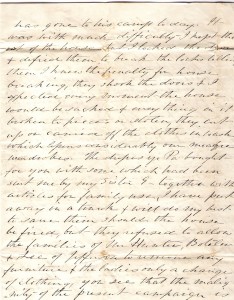 has gone to his camp to day. It
was with much difficulty I kept them
out of the house but I locked the doors
& defied them to break the locks telling
them I knew the penalty for house
breaking, they shook the doors but
effected every moment the house
would be sacked & everything
broken to pieces or stolen, they cut
up or carried off the clothes in wash
which lessens considerably our meagre
wardrobe. The slippers Pa bought
for you with some which had been
sent me by my Sister E together with
articles for family use, I have put
away in a trunk & will do my best
to save them should the house
be fired but they refused to allow
the families of Mr Hunter, Boteler
& Lee of Jefferson to remove any
furniture & the ladies only a change
of clothing, you see that the malig
nity of the present campaign is